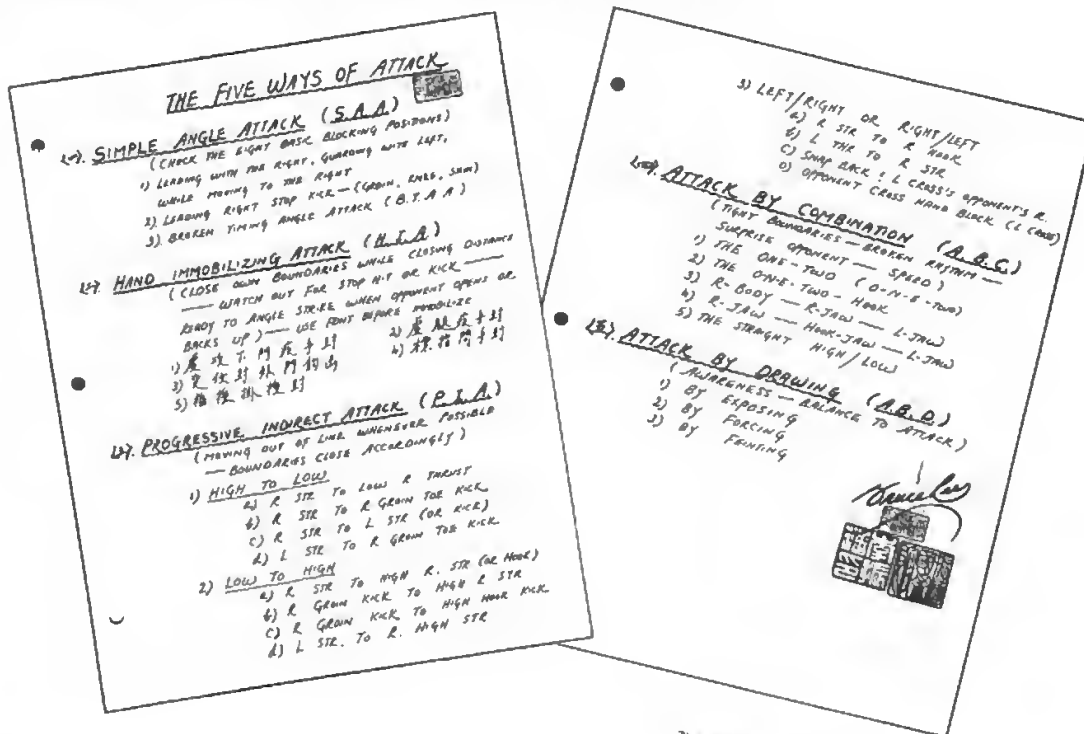 THE FIVE WAYS OF ATTACK
(一). SIMPLE ANGLE ATTACK (S.A.A)
(CHECK THE EIGHT BASIC BLOCKING POSITIONS)
1) LEADING WITH THE RIGHT, GUARDING WITH LEFT,
WHILE MOVING TO THE RIGHT
2) LEADING RIGHT STOP KICK — (GROIN, KNEE, SHIN)
3). BROKEN TIMING ANGLE ATTACK (B.T.A.A)
(二). HAND IMMOBILIZING ATTACK (H.I.A)
(CLOSE DOWN BOUNDARIES WHILE CLOSING DISTANCE
— WATCH OUT FOR STOP HIT OR KICK —
READY TO ANGLE STRIKE WHEN OPPONENT OPENS OR
BACKS UP) — USE FEINT BEFORE IMMOBILIZE
1) 下門 手封
2) 手封
3) 封外門
4) 標指 手封
5) 掛 封
(三). PROGRESSIVE INDIRECT ATTACK (P.I.A)
(MOVING OUT OF LINE WHENEVER POSSIBLE
— BOUNDARIES CLOSE ACCORDINGLY)
1) HIGH TO LOW
a) R STR TO LOW R THRUST
b) R STR TO R GROIN TOE KICK
c) R STR TO L STR (OR KICK)
d) L STR TO R GROIN TOE KICK
2) LOW TO HIGH
a) R STR TO HIGH R. STR (OR HOOK)
b) R GROIN KICK TO HIGH R STR
c) R GROIN KICK TO HIGH HOOK KICK
d) L STR. TO R. HIGH STR
3) LEFT/RIGHT OR RIGHT/LEFT
a) R STR TO R HOOK
b) L THR TO R STR
c) SNAP BACK, L CROSS'S OPPONENT'S R.
D) OPPONENT CROSS HAND BLOCK (L CROSS)
(四). ATTACK BY COMBINATION (A.B.C.)
(TIGHT BOUNDARIES — BROKEN RHYTHM —
SURPRISE OPPONENT — SPEED)
1) THE ONE-TWO (O-N-E-TWO)
2) THE ONE-TWO-HOOK
3) R-BODY — R-JAW — L-JAW
4) R-JAW — HOOK-JAW — L-JAW
5) THE STRAIGHT HIGH/LOW
(五). ATTACK BY DRAWING (A.B.D.)
(AWARENESS — BALANCE TO ATTACK)
1) BY EXPOSING
2) BY FORCING
3) BY FEINTING
Bruce Lee